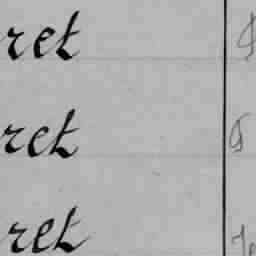 ret
ret
ret